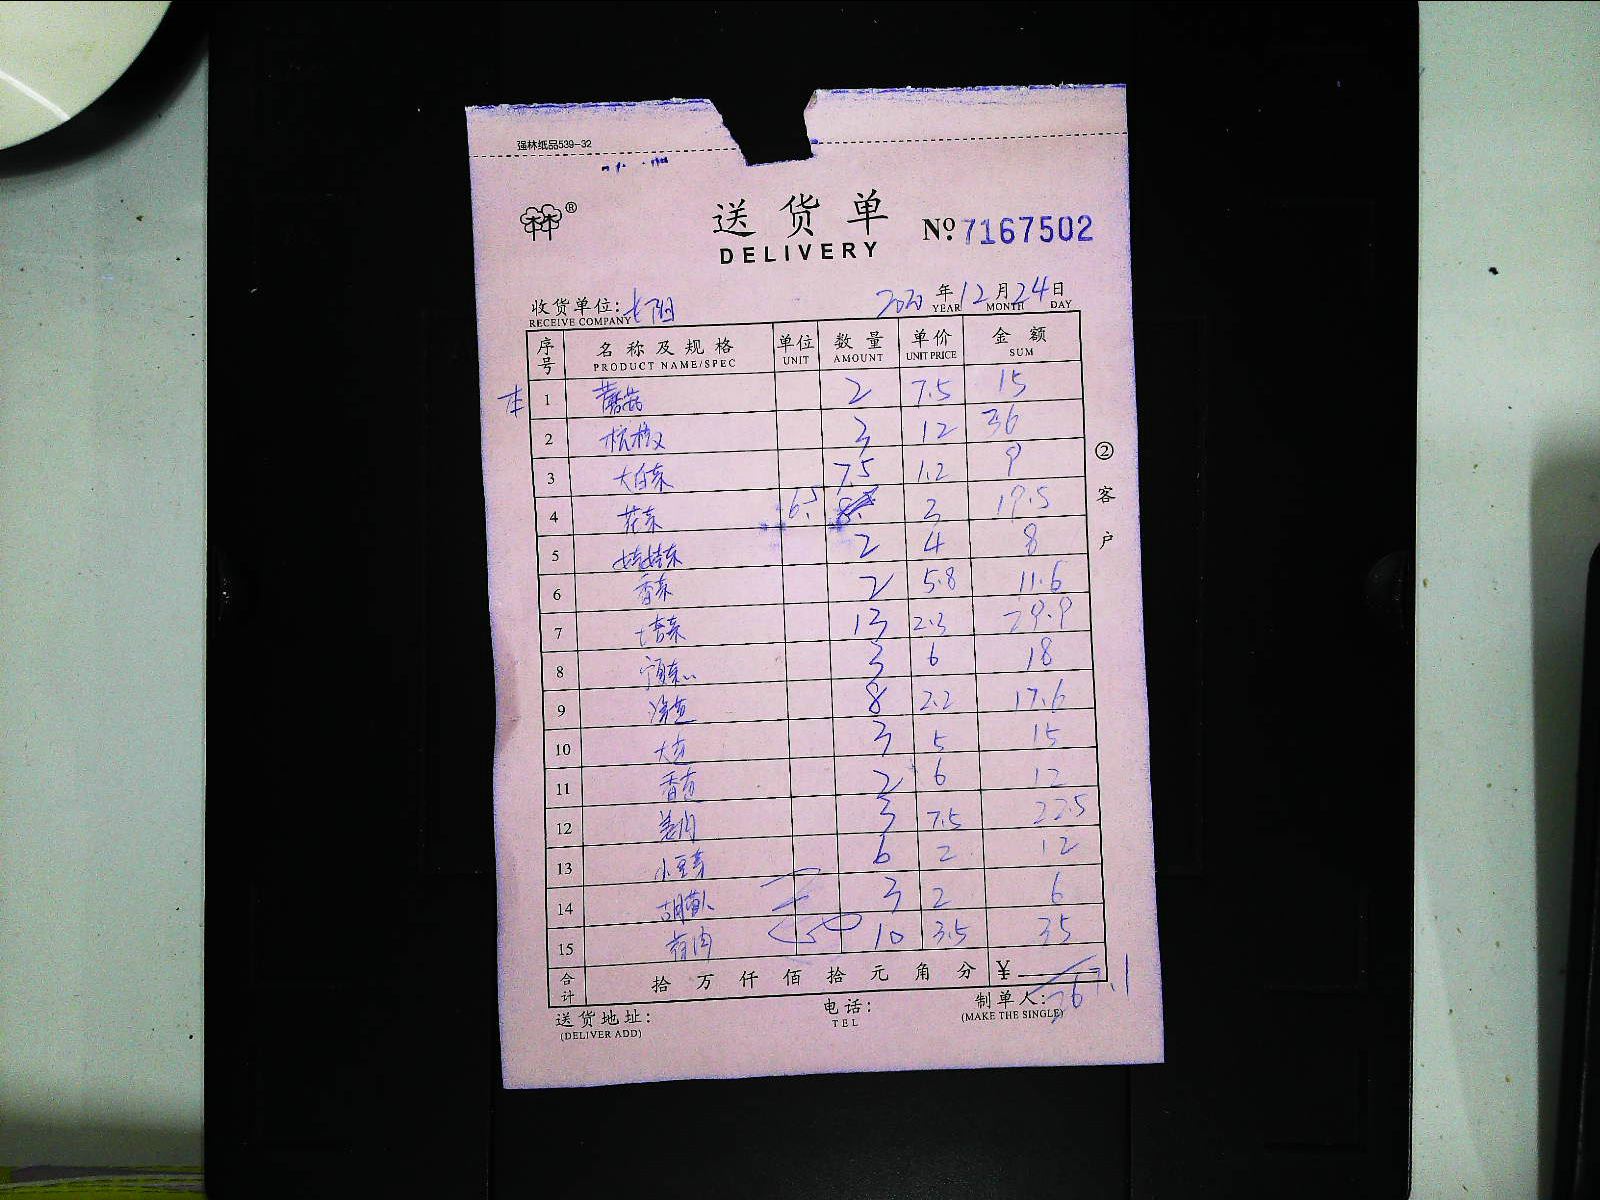 强林纸品539-32
®
送货单
DELIVERY
№ 7167502
收货单位: 长阳 2020 年 12 月 24 日
RECEIVE COMPANY YEAR MONTH DAY
序号 名称及规格 单位 数量 单价 金额
PRODUCT NAME/SPEC UNIT AMOUNT UNIT PRICE SUM
本 1 蘑菇 2 7.5 15
2 杭椒 3 12 36
3 大白菜 7.5 1.2 9
4 花菜 6.5 3 19.5
5 娃娃菜 2 4 8
6 香菜 2 5.8 11.6
7 13 2.3 29.9
8 3 6 18
9 洋芋 8 2.2 17.6
10 3 5 15
11 2 6 12
12 姜 3 7.5 22.5
13 小豆芽 6 2 12
14 胡萝卜 3 2 6
15 10 3.5 35
合计 拾 万 仟 佰 拾 元 角 分 ¥ 267.1
送货地址: 电话: 制单人:
(DELIVER ADD) TEL (MAKE THE SINGLE)
②客户